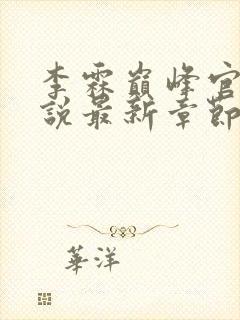 李霖巔峰官
說最新章節
華洋